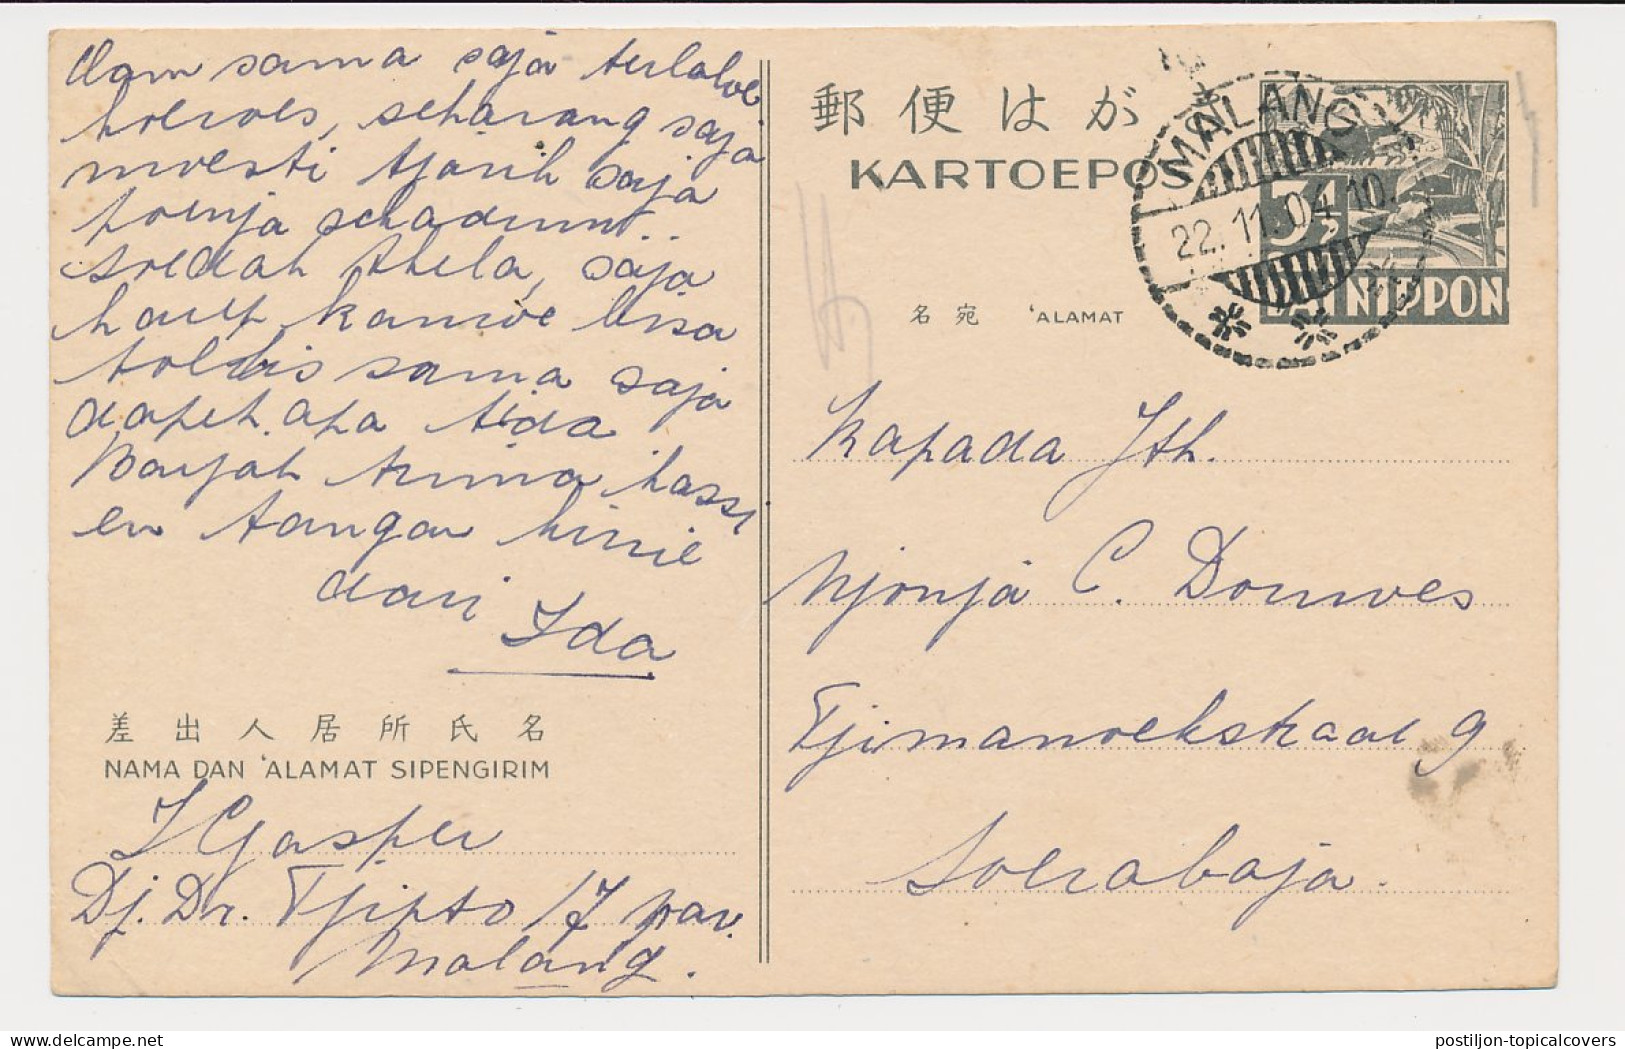 dam sama saja terlaloe
koeroes, seharang saja
moesti tjarih saja
poenja schaduw..
soedah thela, saja
harep kamoe bisa
toelis sama saja
dapet apa tida
Banjak trima kassi
en tangan kirrie
dari
Ida
差出人居所氏名
NAMA DAN 'ALAMAT SIPENGIRIM
I Gasper
Dj. Dr. Tjipto 17 pav.
Malang.
郵便はが き
KARTOEPOS
MALANG
22.11.04 10.
3½
NIPPON
名宛 'ALAMAT
Kapada Jth.
Njonja C. Douwes
Tjimanoekstraat 9
Soerabaja.
postiljon-topicalcovers